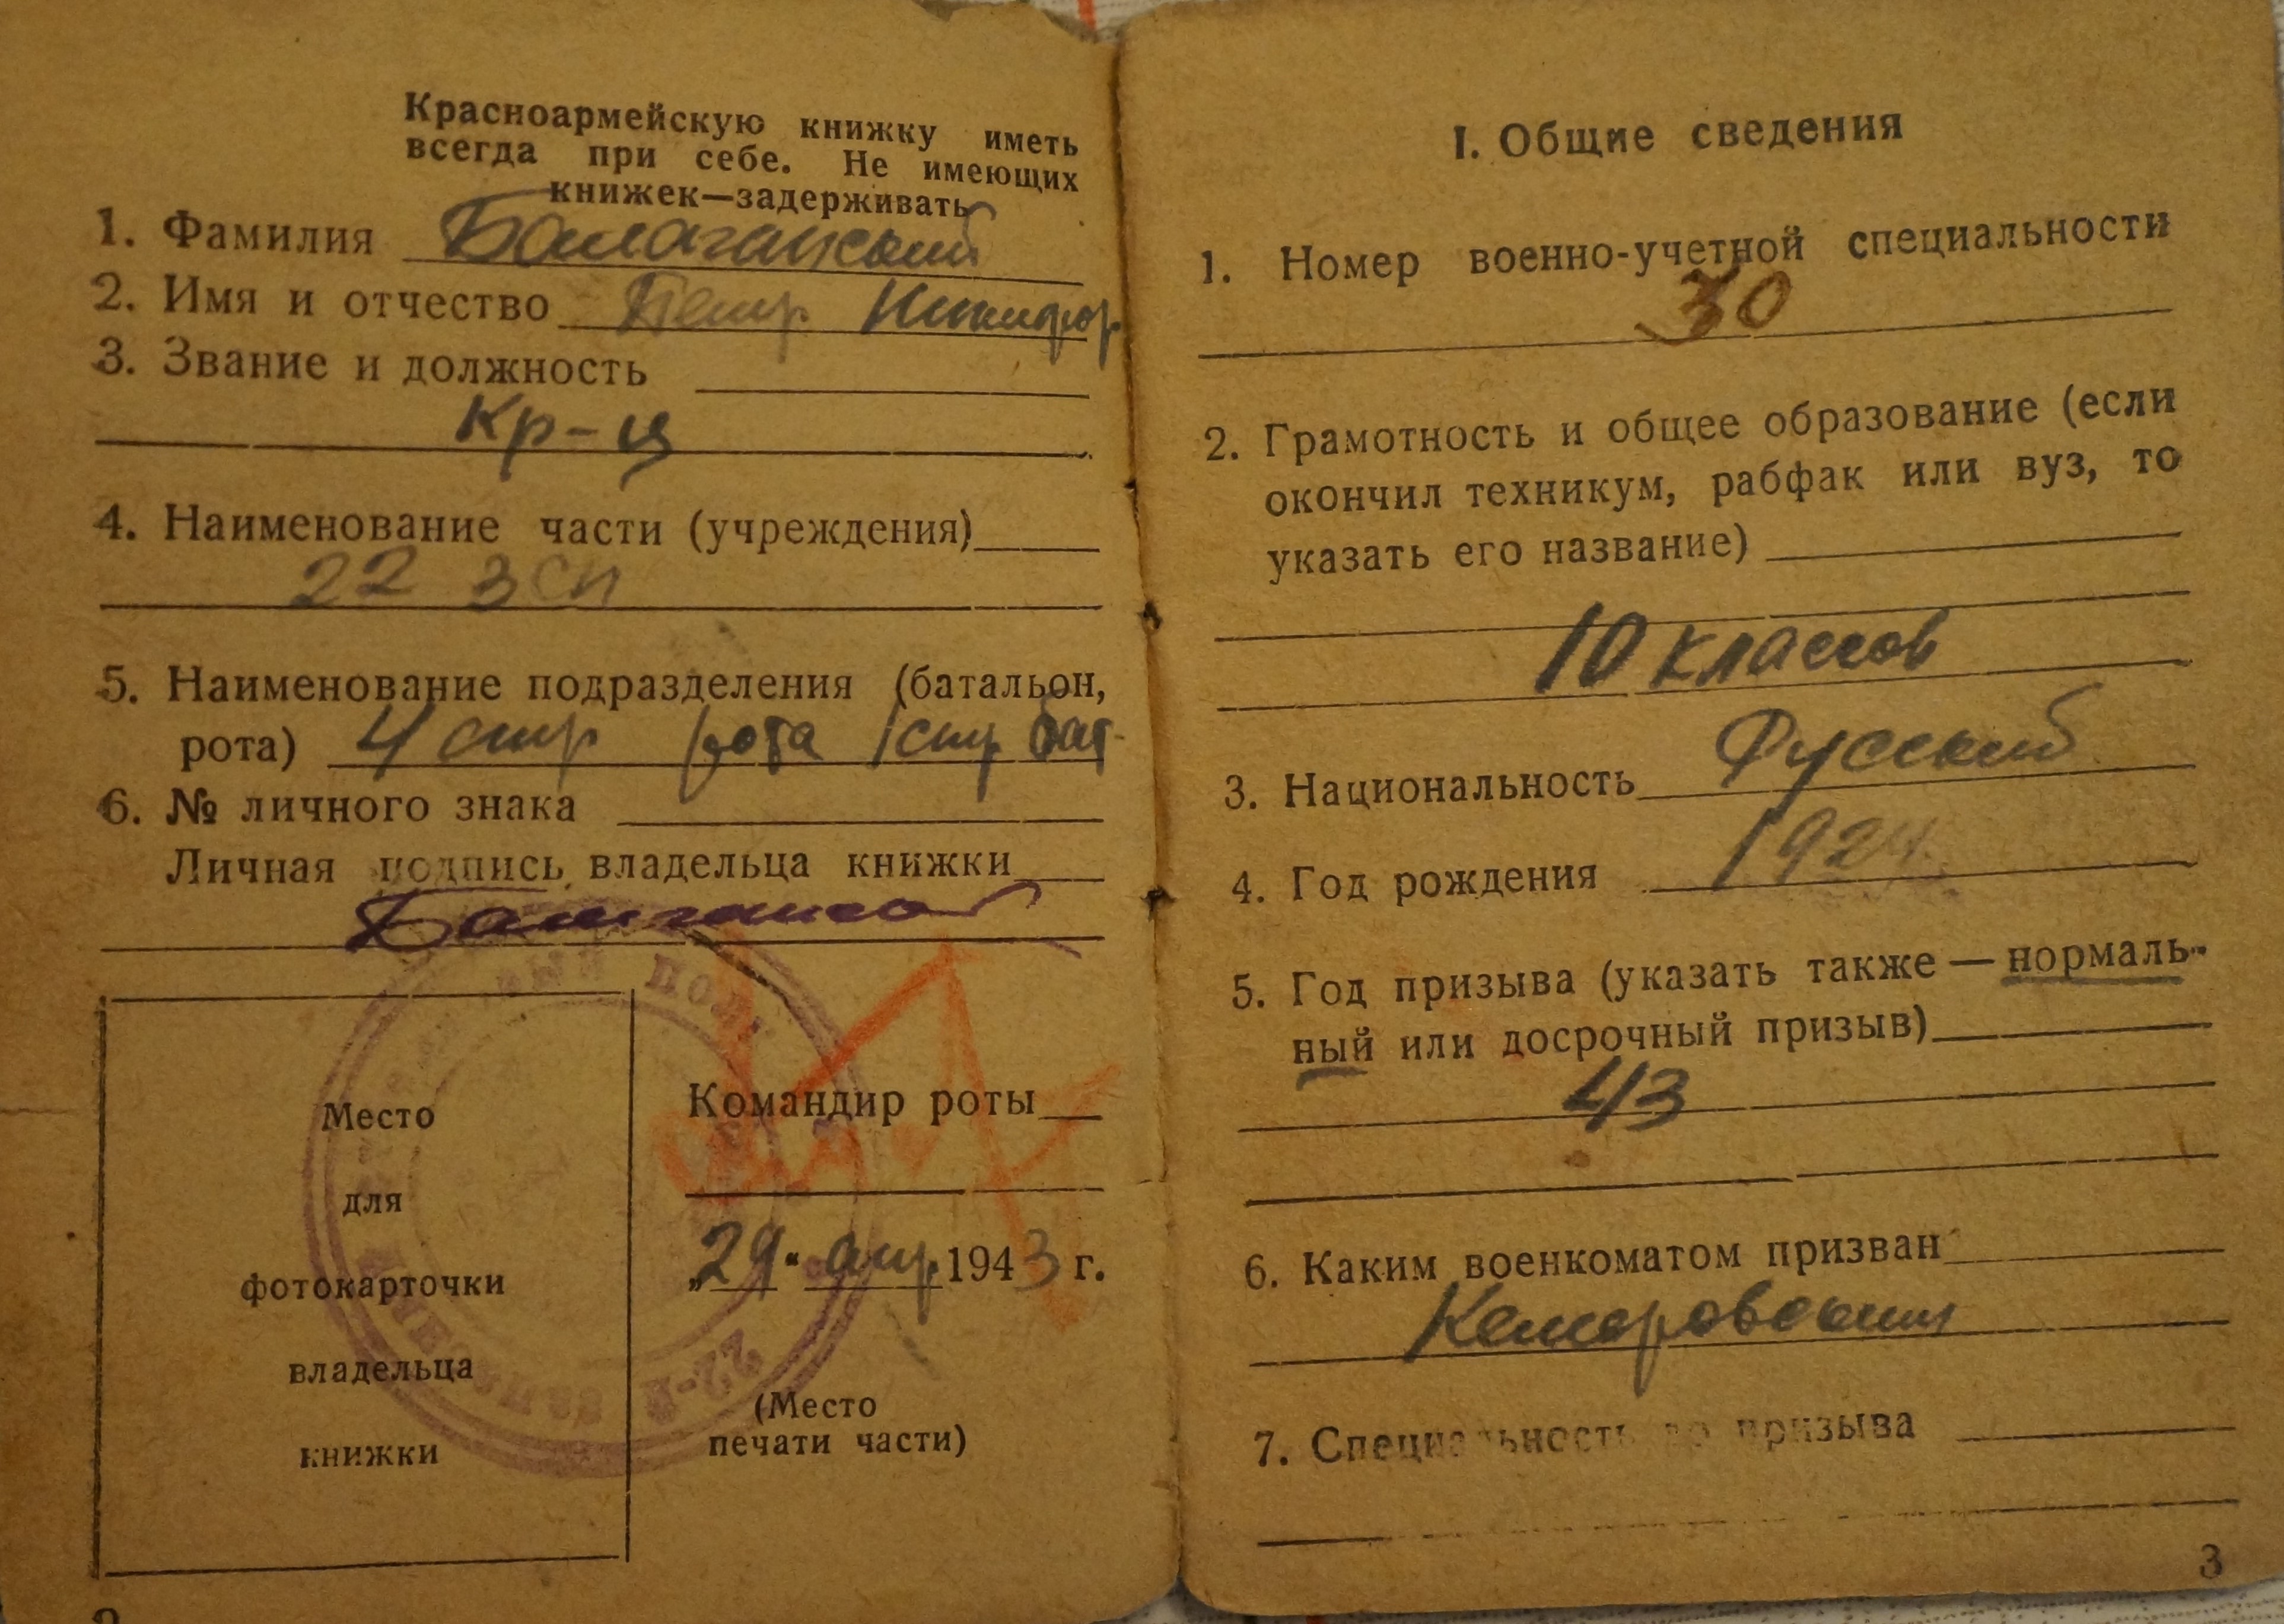 Красноармейскую книжку иметь
всегда при себе. Не имеющих
книжек—задерживать
1. Фамилия Балаганский
2. Имя и отчество Петр Никифор.
3. Звание и должность
Кр-ц
4. Наименование части (учреждения)
22 зсп
5. Наименование подразделения (батальон,
рота) 4 стр рота 1 стр бат
6. № личного знака
Личная подпись владельца книжки
Место
для
фотокарточки
владельца
книжки
Командир роты
„29“ апр. 1943 г.
(Место
печати части)
I. Общие сведения
1. Номер военно-учетной специальности
30
2. Грамотность и общее образование (если
окончил техникум, рабфак или вуз, то
указать его название)
10 классов
3. Национальность Русский
4. Год рождения 1924
5. Год призыва (указать также — нормаль-
ный или досрочный призыв)
43
6. Каким военкоматом призван
Кемеровским
7. Специальность до призыва
3